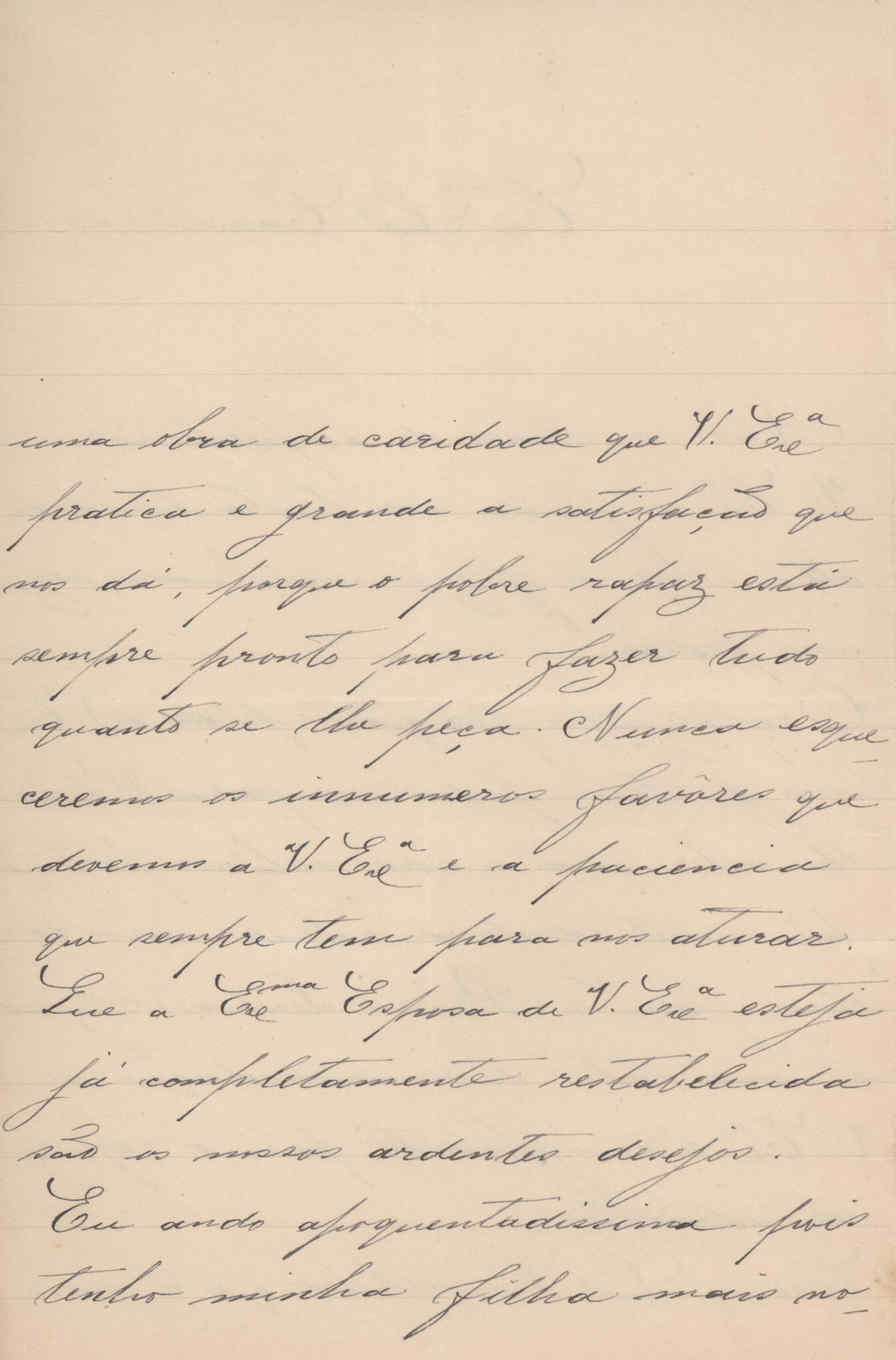 uma obra de caridade que V. Exª
pratica e grande a satisfação que
nos dá, porque o pobre rapaz está
sempre pronto para fazer tudo
quanto se lhe peça. Nunca esque-
ceremos os innumeros favôres que
devemos a V. Exª e a paciencia
que sempre tem para nos aturar.
Que a Exma Esposa de V. Exª esteja
já completamente restabelecida
são os nossos ardentes desejos.
Eu ando apoquentadissima pois
tenho minha filha mais no-